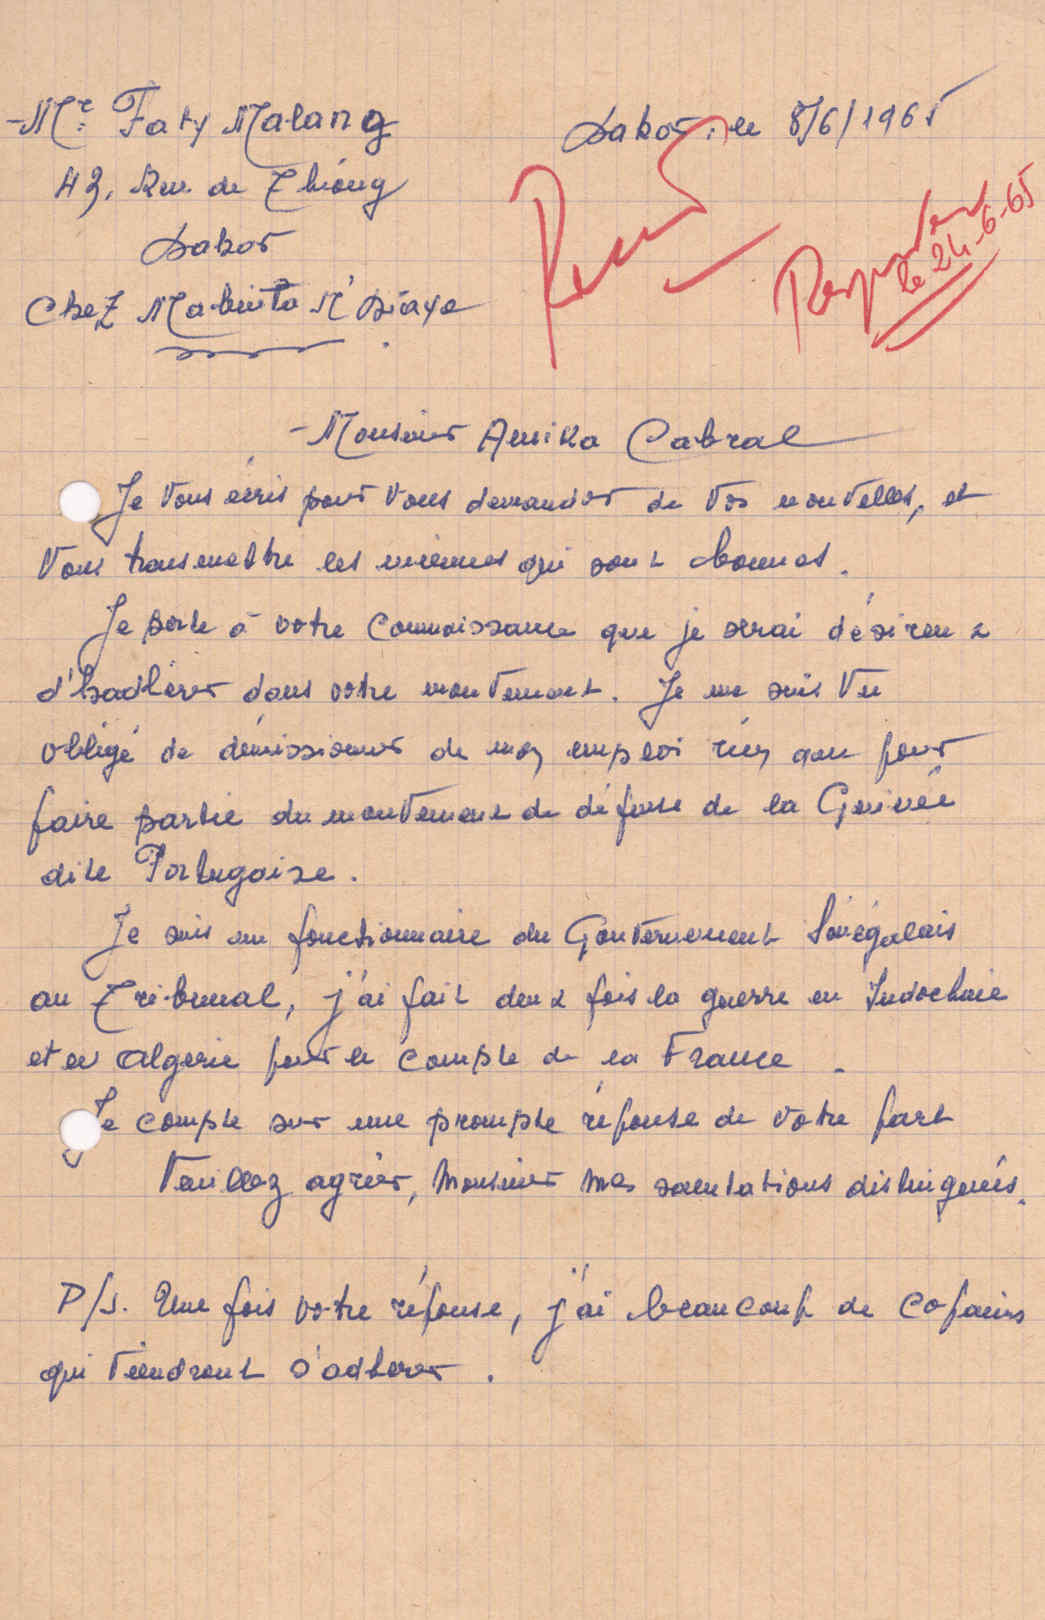 Mr: Faty Malang
Dakar, le 8/6/1965
43, Rue de Thiong
Dakar
Chez Mabinta N'Diaye
Répondu
le 24-6-65
Monsieur Amilka Cabral
Je vous écris pour vous demander de vos nouvelles, et
vous transmettre les miennes qui sont bonnes.
Je porte à votre connaissance que je serai désireux
d'hadhérer dans votre mouvement. Je me suis vu
obligé de démissionner de mon emploi rien que pour
faire partie du mouvement de défense de la Guinée
dite Portugaise.
Je suis un fonctionnaire du Gouvernement Sénégalais
au Tribunal, j'ai fait deux fois la guerre en Indochine
et en Algerie pour le compte de la France.
Je compte sur une prompte réponse de votre part
Veuillez agréer, Monsieur mes salutations distinguées.
P/S. Une fois votre réponse, j'ai beaucoup de copains
qui viendront s'adherer.